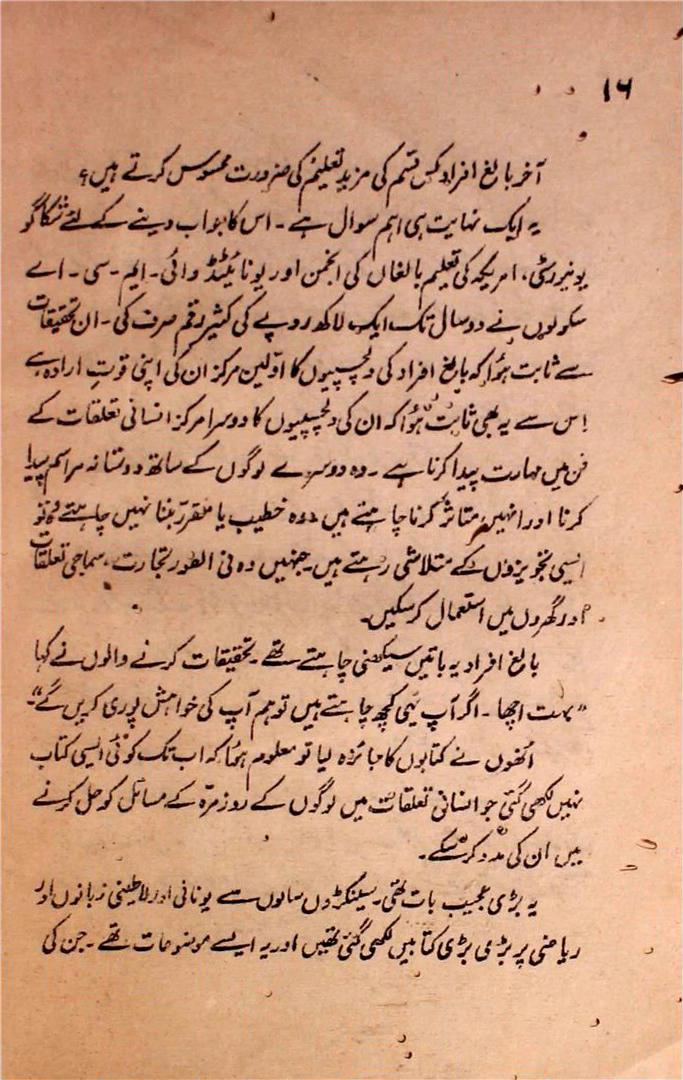 ۱۶
آخر بالغ افراد کس قسم کی مزید تعلیم کی ضرورت محسوس کرتے ہیں؟
یہ ایک نہایت ہی اہم سوال ہے۔ اس کا جواب دینے کے لئے شکاگو
یونیورسٹی، امریکہ کی تعلیم بالغاں کی انجمن اور یونائیٹڈ وائی۔ ایم۔ سی۔ اے
سکولوں نے دو سال تک ایک لاکھ روپے کی کثیر رقم صرف کی۔ ان تحقیقات
سے ثابت ہؤا کہ بالغ افراد کی دلچسپیوں کا اوّلین مرکز ان کی اپنی قوتِ ارادہ ہے
اِس سے یہ بھی ثابت ہؤا کہ ان کی دلچسپیوں کا دوسرا مرکز انسانی تعلقات کے
فن میں مہارت پیدا کرنا ہے۔ وہ دوسرے لوگوں کے ساتھ دوستانہ مراسم پیدا
کرنا اور انہیں متاثر کرنا چاہتے ہیں۔ وہ خطیب یا مقرر بننا نہیں چاہتے وہ تو
ایسی تجویزوں کے متلاشی رہتے ہیں۔ جنہیں وہ فی الفور تجارت، سماجی تعلقات
اور گھروں میں استعمال کر سکیں۔
بالغ افراد یہ باتیں سیکھنی چاہتے تھے۔ تحقیقات کرنے والوں نے کہا
”بہت اچھا۔ اگر آپ یہی کچھ چاہتے ہیں تو ہم آپ کی خواہش پوری کریں گے“۔
انھوں نے کتابوں کا جائزہ لیا تو معلوم ہؤا کہ اب تک کوئی ایسی کتاب
نہیں لکھی گئی جو انسانی تعلقات میں لوگوں کے روزمرّہ کے مسائل کو حل کرنے
میں ان کی مدد کر سکے۔
یہ بڑی عجیب بات تھی۔ سینکڑوں سالوں سے یونانی اور لاطینی زبانوں اور
ریاضی پر بڑی بڑی کتابیں لکھی گئی تھیں اور یہ ایسے موضوعات تھے۔ جن کی